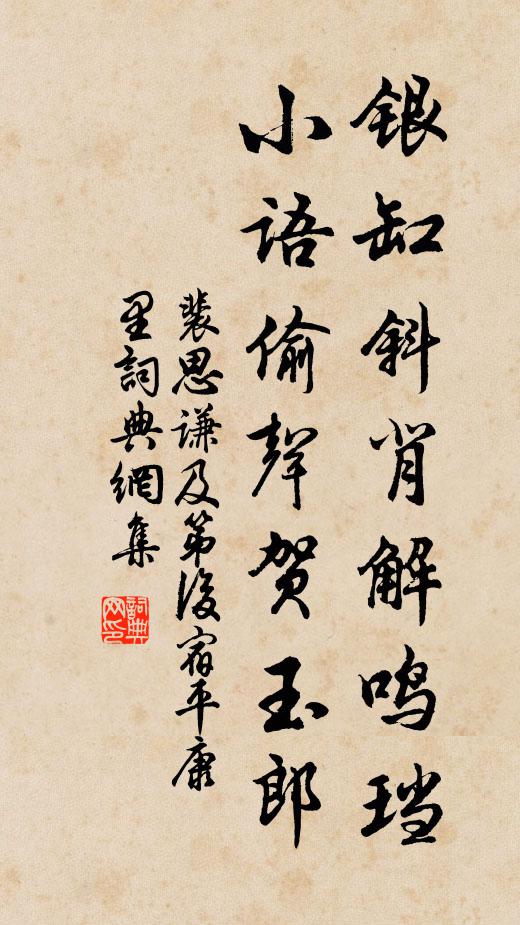 银缸斜背解鸣珰
小语偷声贺玉郎
裴思谦及第後宿平康
里詞典網集
詞典网印